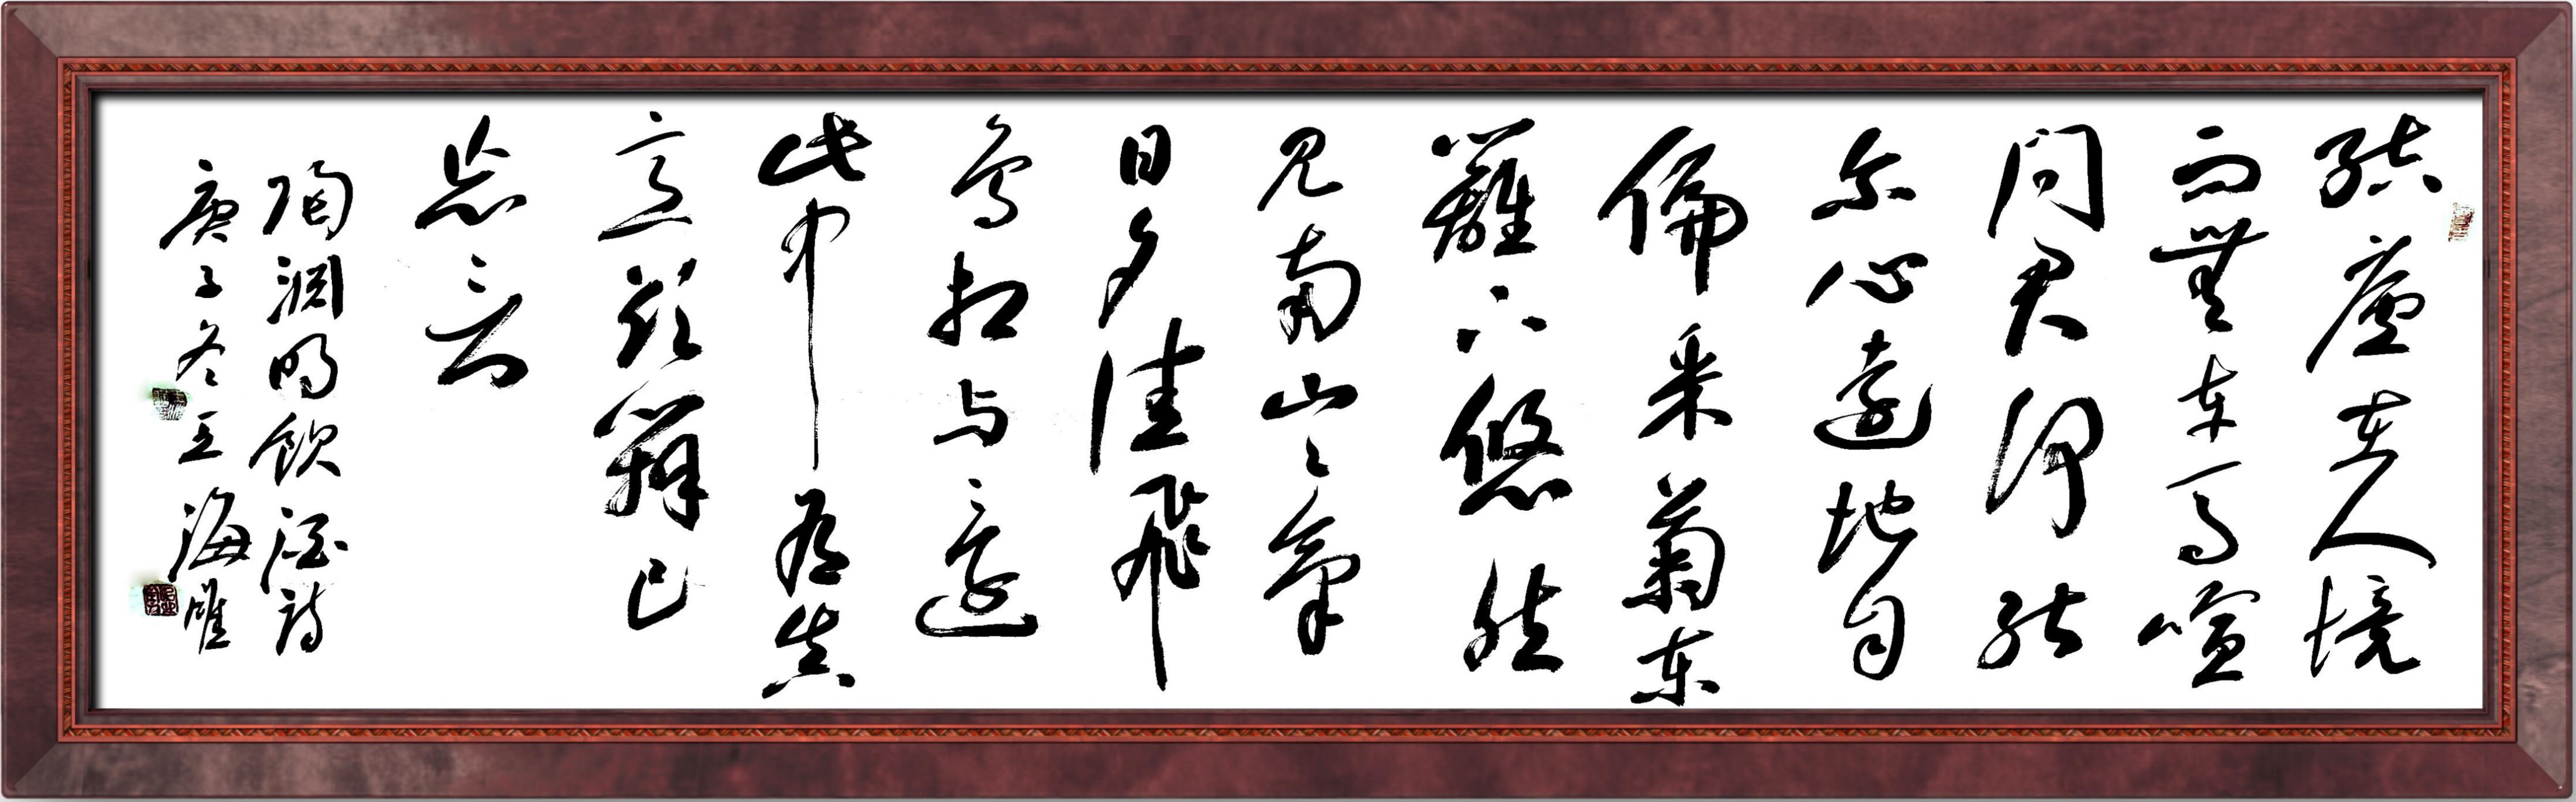 结庐在人境
而无车马喧
问君何能
尔心远地自
偏采菊东
篱下悠然
见南山山气
日夕佳飞
鸟相与还
此中有真
意欲辩已
忘言
陶渊明饮酒诗
庚子冬王海雁